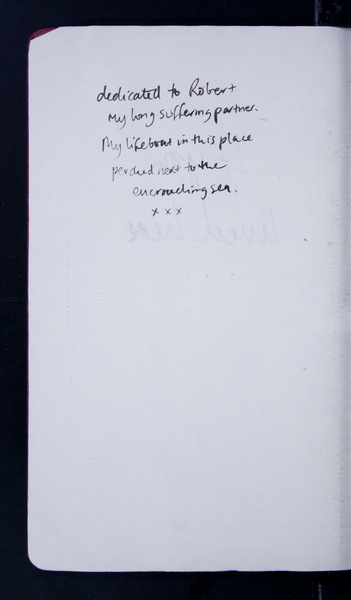 dedicated to Robert
My long suffering partner.
My lifeboat in this place
perched next to the
encroaching sea.
x x x